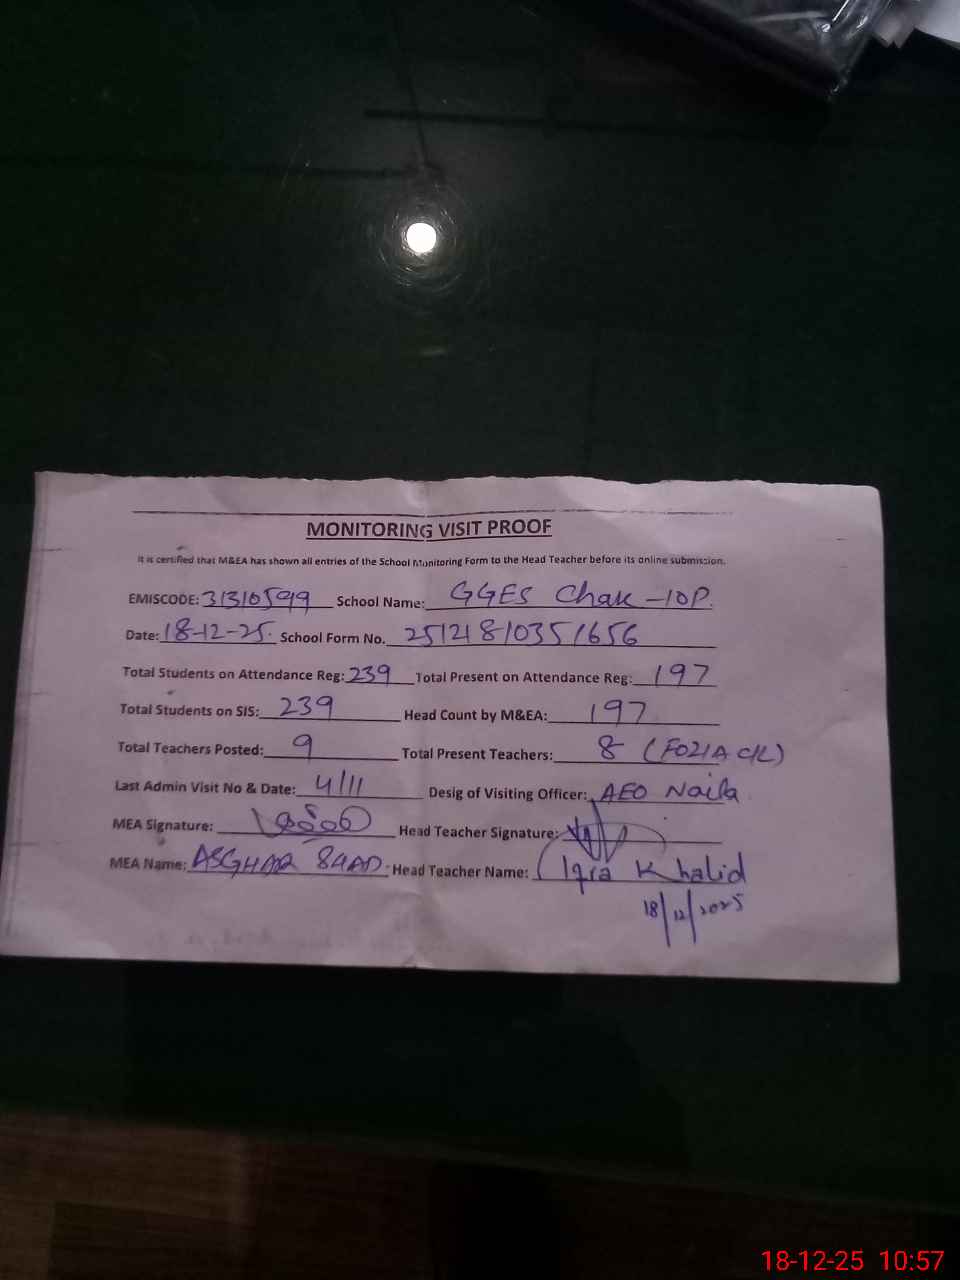 MONITORING VISIT PROOF
It is certified that M&EA has shown all entries of the School Monitoring Form to the Head Teacher before its online submission.
EMISCODE: 31310599 School Name: GGES Chak -10P.
Date: 18-12-25. School Form No. 251218 10351656
Total Students on Attendance Reg: 239 Total Present on Attendance Reg: 197
Total Students on SIS: 239 Head Count by M&EA: 197
Total Teachers Posted: 9 Total Present Teachers: 8 (FOZIA C/L)
Last Admin Visit No & Date: 4/11 Desig of Visiting Officer: AEO Naila
MEA Signature: Head Teacher Signature:
MEA Name: ASGHAR Head Teacher Name: Iqra Khalid
18/12/2025
18-12-25 10:57